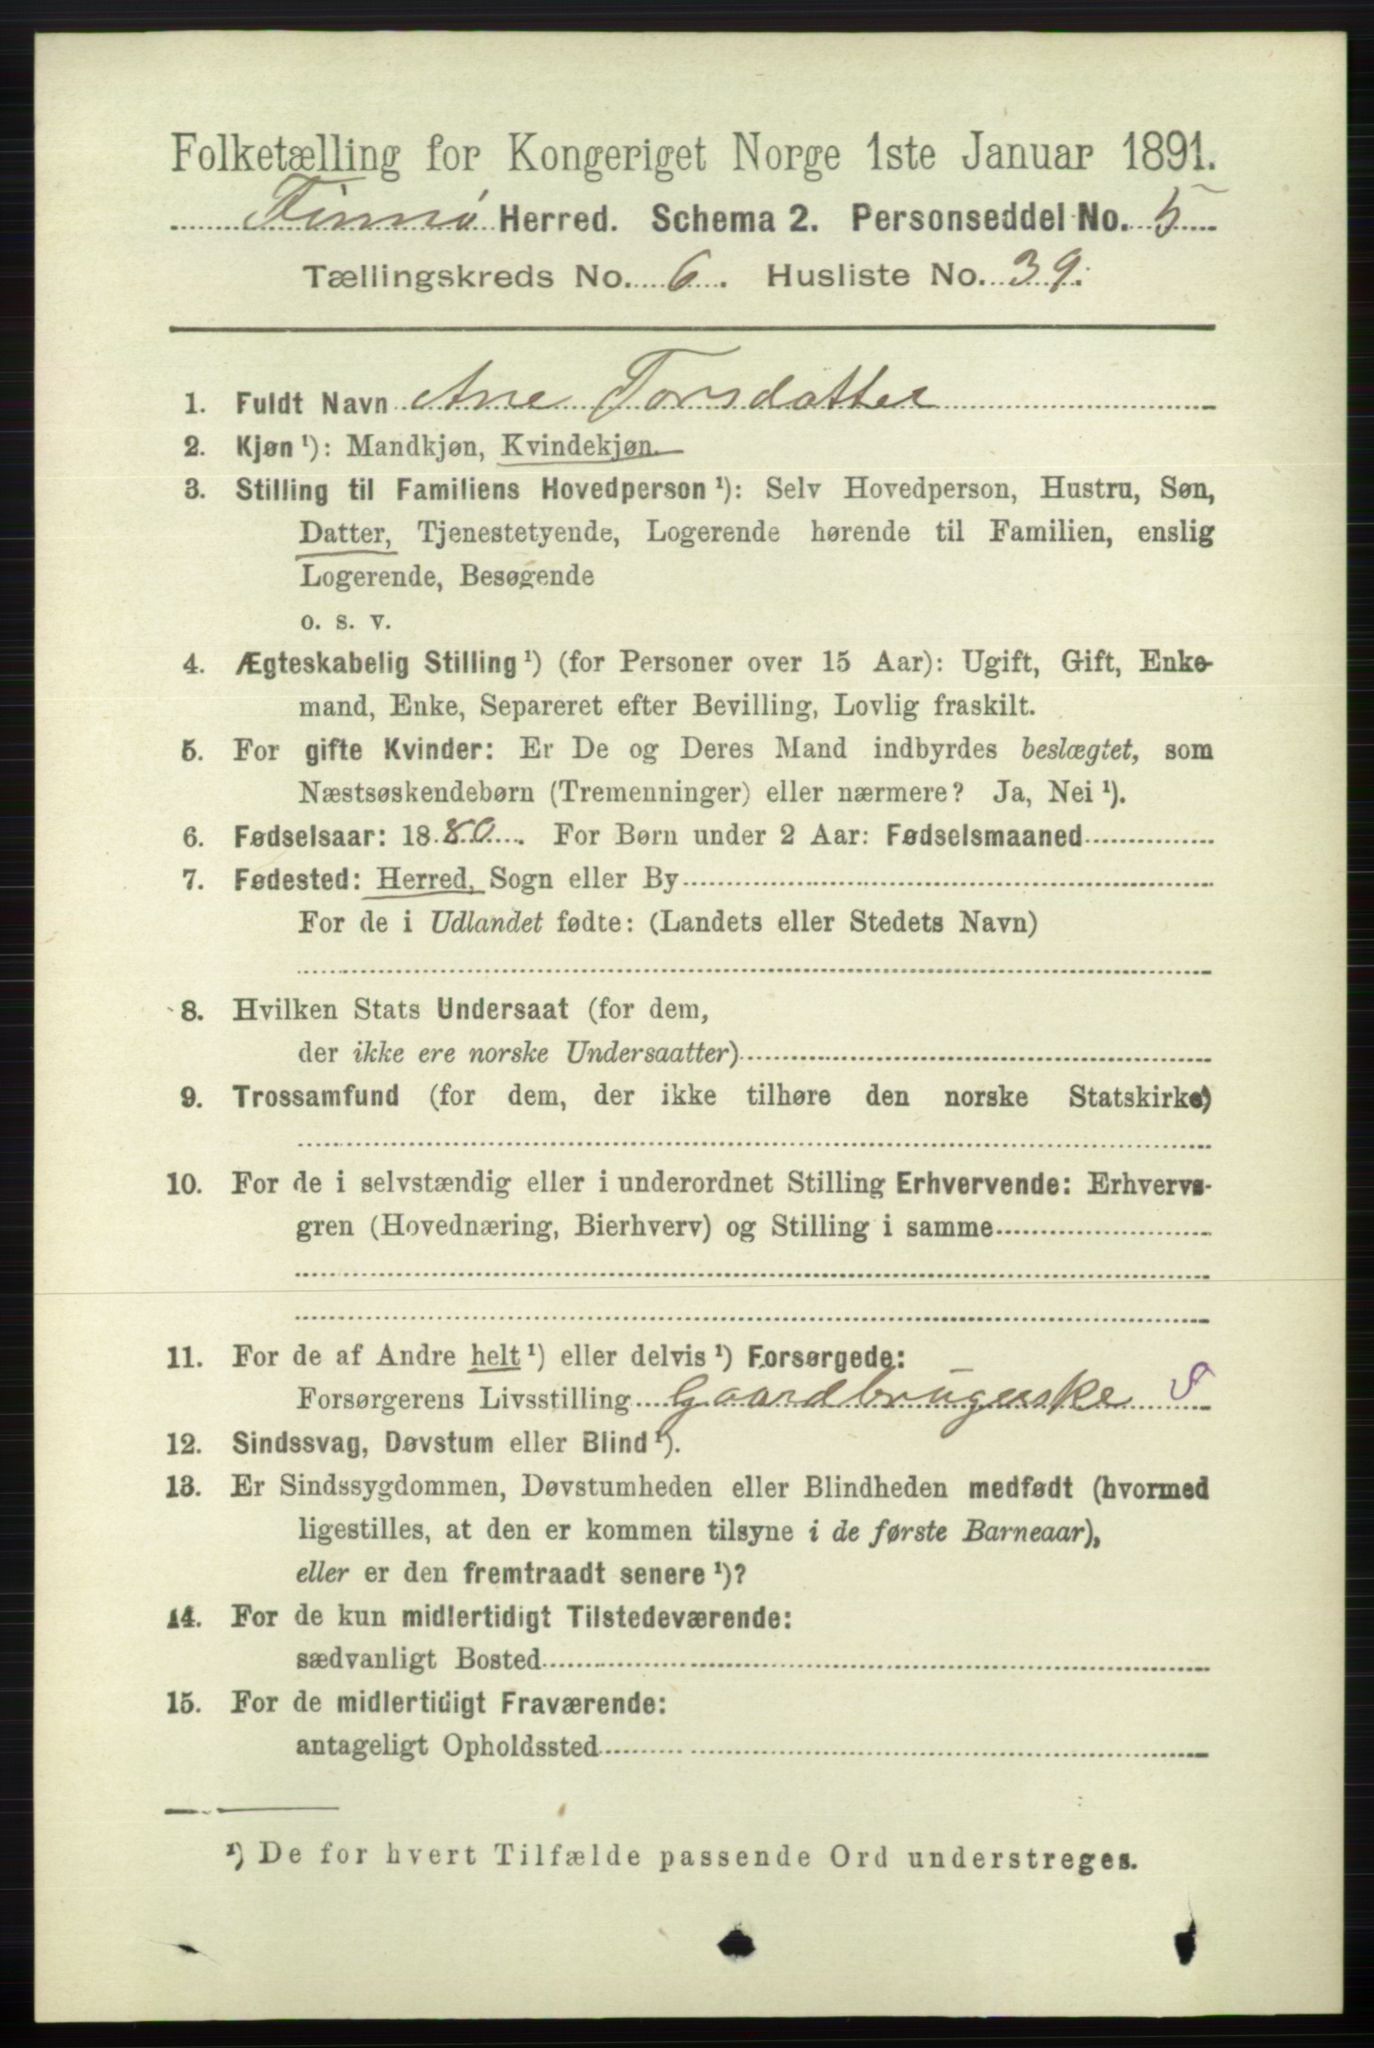 Folketælling for Kongeriget Norge 1ste Januar 1891.
Finnø Herred. Schema 2. Personseddel No. 5
Tællingskreds No. 6. Husliste No. 39.
1. Fuldt Navn Ane Torsdatter
2. Kjøn¹): Mandkjøn, Kvindekjøn.
3. Stilling til Familiens Hovedperson¹): Selv Hovedperson, Hustru, Søn,
Datter, Tjenestetyende, Logerende hørende til Familien, enslig
Logerende, Besøgende
o. s. v.
4. Ægteskabelig Stilling¹) (for Personer over 15 Aar): Ugift, Gift, Enke-
mand, Enke, Separeret efter Bevilling, Lovlig fraskilt.
5. For gifte Kvinder: Er De og Deres Mand indbyrdes beslægtet, som
Næstsøskendebørn (Tremenninger) eller nærmere? Ja, Nei¹).
6. Fødselsaar: 1880. For Børn under 2 Aar: Fødselsmaaned
7. Fødested: Herred, Sogn eller By
For de i Udlandet fødte: (Landets eller Stedets Navn)
8. Hvilken Stats Undersaat (for dem,
der ikke ere norske Undersaatter)
9. Trossamfund (for dem, der ikke tilhøre den norske Statskirke)
10. For de i selvstændig eller i underordnet Stilling Erhvervende: Erhvervs-
gren (Hovednæring, Bierhverv) og Stilling i samme
11. For de af Andre helt¹) eller delvis¹) Forsørgede:
Forsørgerens Livsstilling Gaardbrugerske S
12. Sindssvag, Døvstum eller Blind¹).
13. Er Sindssygdommen, Døvstumheden eller Blindheden medfødt (hvormed
ligestilles, at den er kommen tilsyne i de første Barneaar),
eller er den fremtraadt senere¹)?
14. For de kun midlertidigt Tilstedeværende:
sædvanligt Bosted
15. For de midlertidigt Fraværende:
antageligt Opholdssted
¹) De for hvert Tilfælde passende Ord understreges.